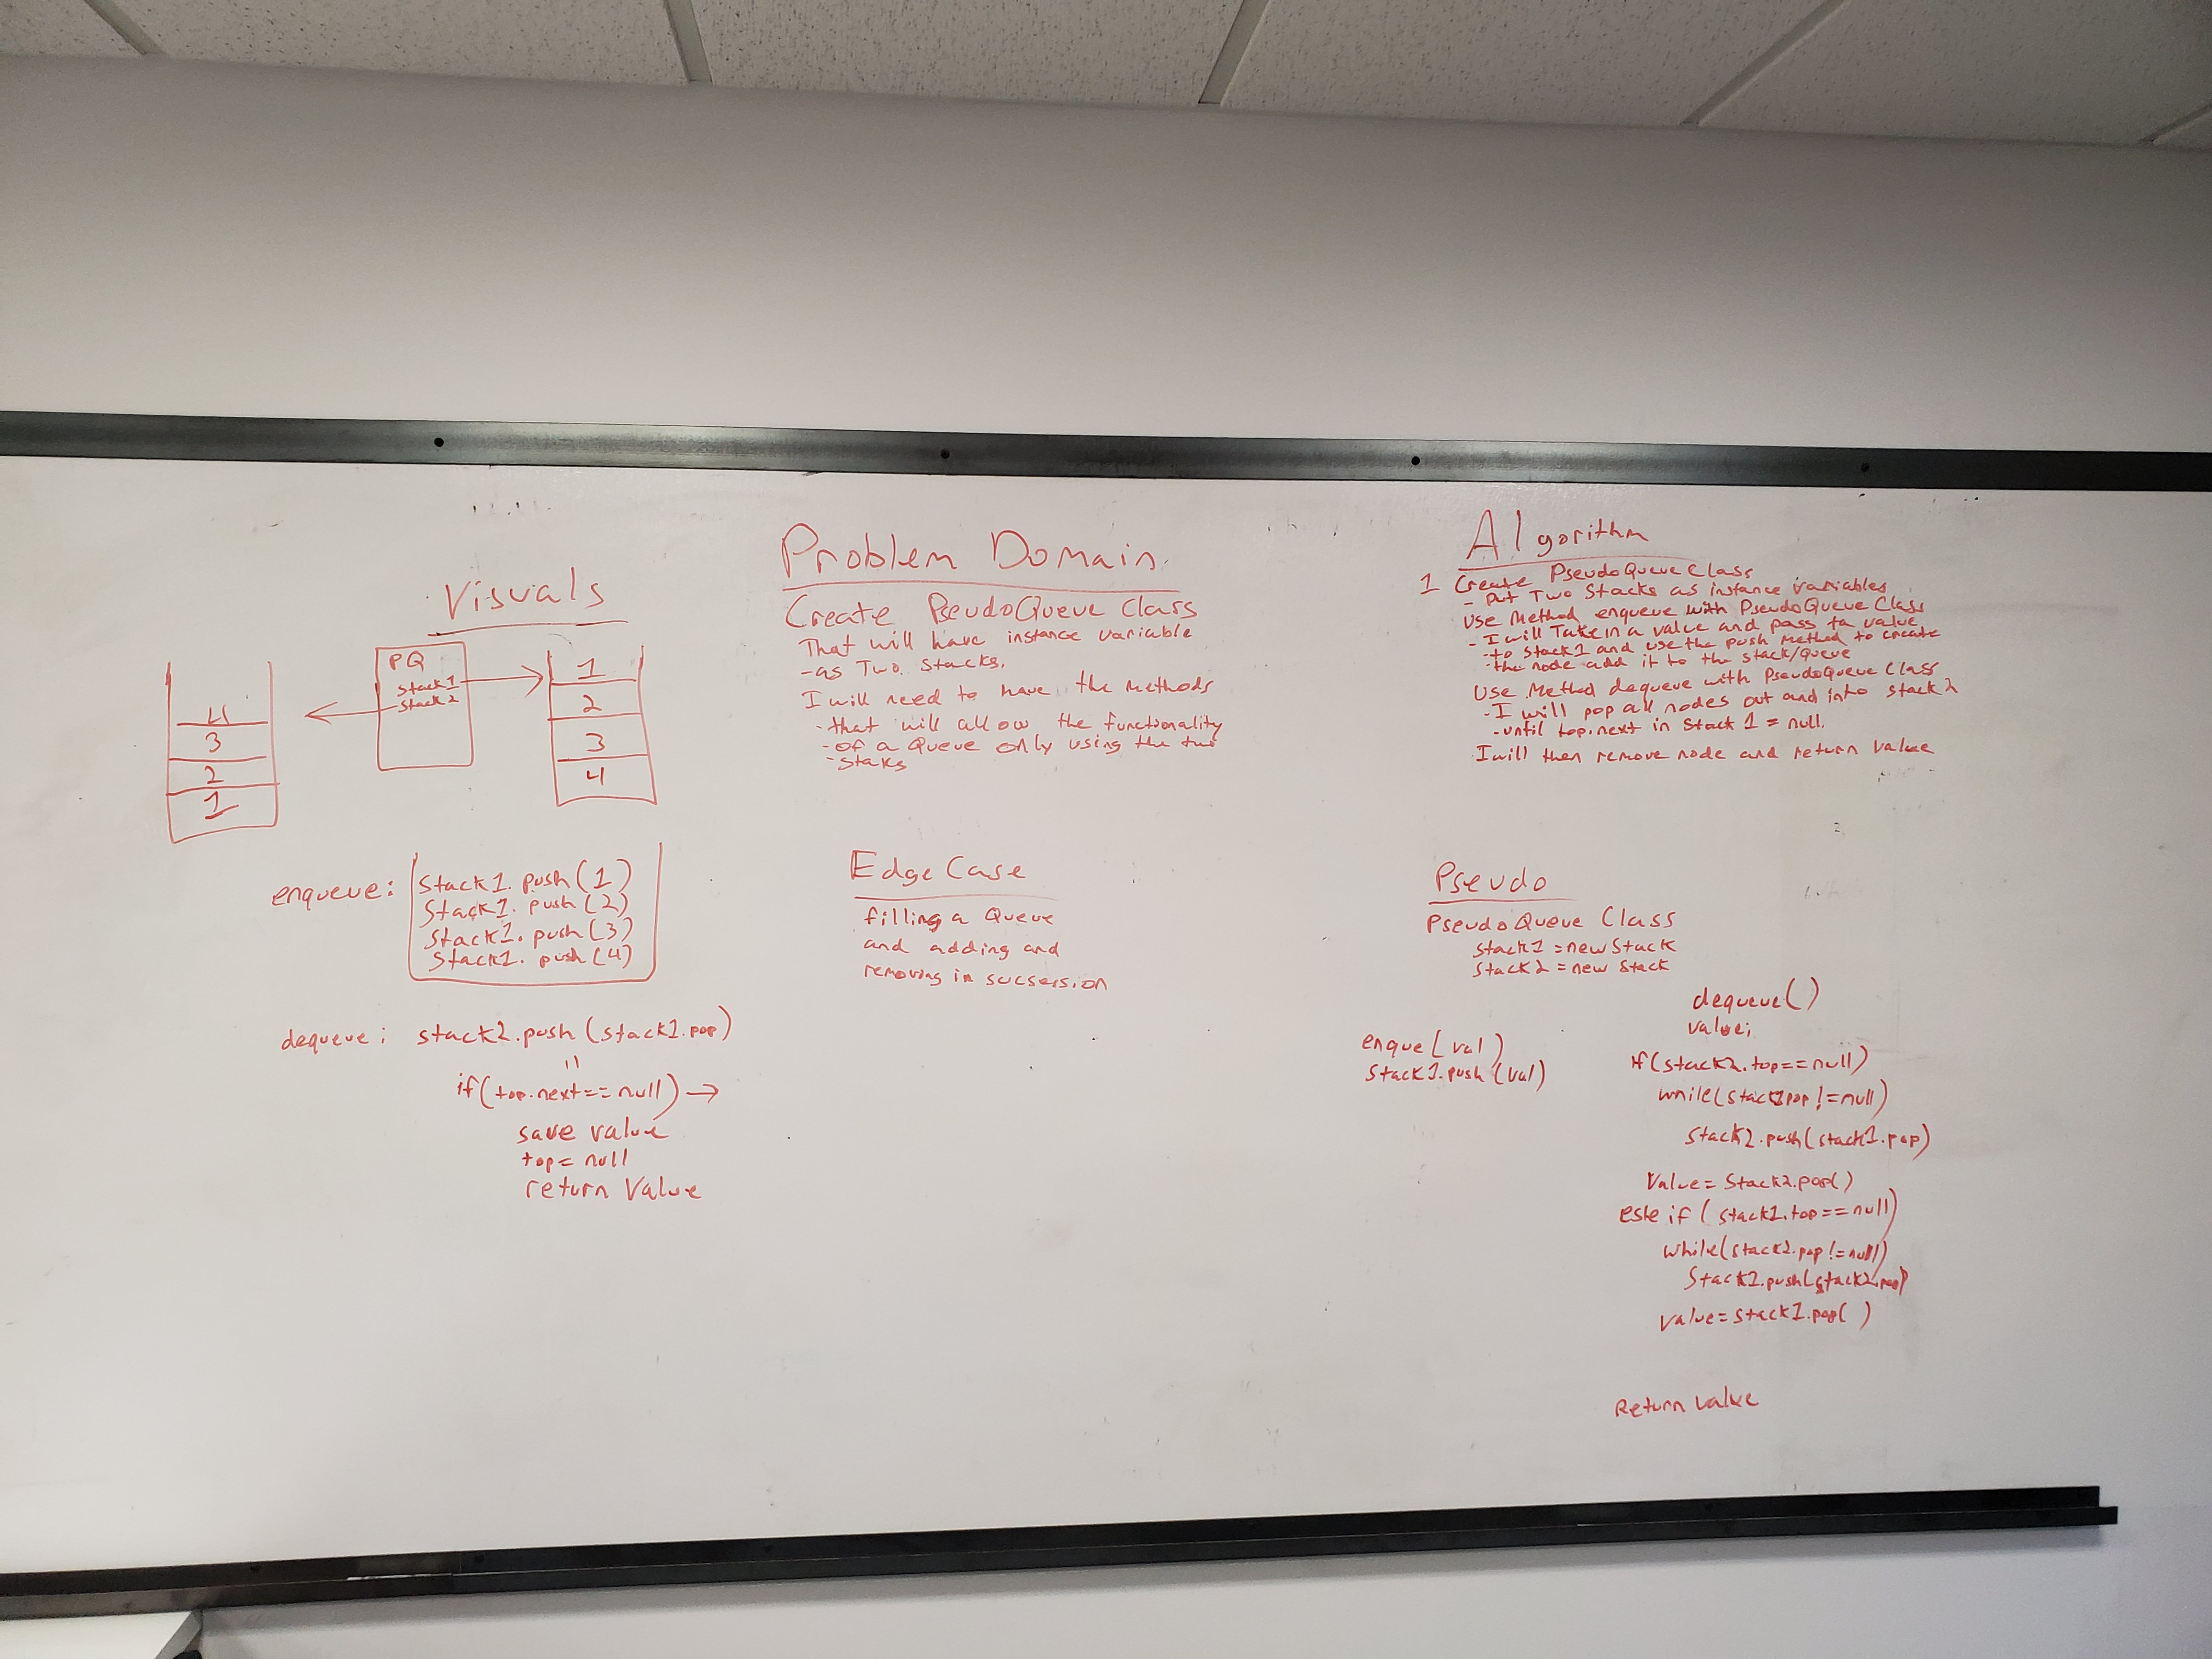 Visuals
PQ
Stack1
Stack2
4
3
2
1
1
2
3
4
enqueue: Stack1.push(1)
Stack1.push(2)
Stack1.push(3)
Stack1.push(4)
dequeue: stack2.push(stack1.pop)
"
if(top.next==null) →
save value
top= null
return Value
Problem Domain
Create PseudoQueue Class
That will have instance variable
- as Two Stacks.
I will need to have the methods
- that will allow the functionality
- of a Queue only using the two
- staks
Edge Case
filling a Queue
and adding and
removing in sucsession
Algorithm
1 Create PseudoQueue Class
- Put Two Stacks as instance variables
Use Method enqueue with PseudoQueue Class
- I will Take in a value and pass ta value
- to Stack1 and use the push method to create
- the node add it to the stack/queue
Use Method dequeue with PseudoQueue Class
- I will pop all nodes out and into stack2
- until top.next in Stack 1 = null.
I will then remove node and return value
Pseudo
PseudoQueue Class
Stack1 = new Stack
Stack2 = new Stack
enque(val)
Stack1.push(val)
dequeue()
value;
if(stack2.top==null)
while(stack1pop!=null)
stack2.push(stack1.pop)
Value= Stack2.pop()
esle if (stack1.top==null)
while(stack2.pop!=null)
Stack1.push(stack2.pop)
Value=stack1.pop( )
Return value